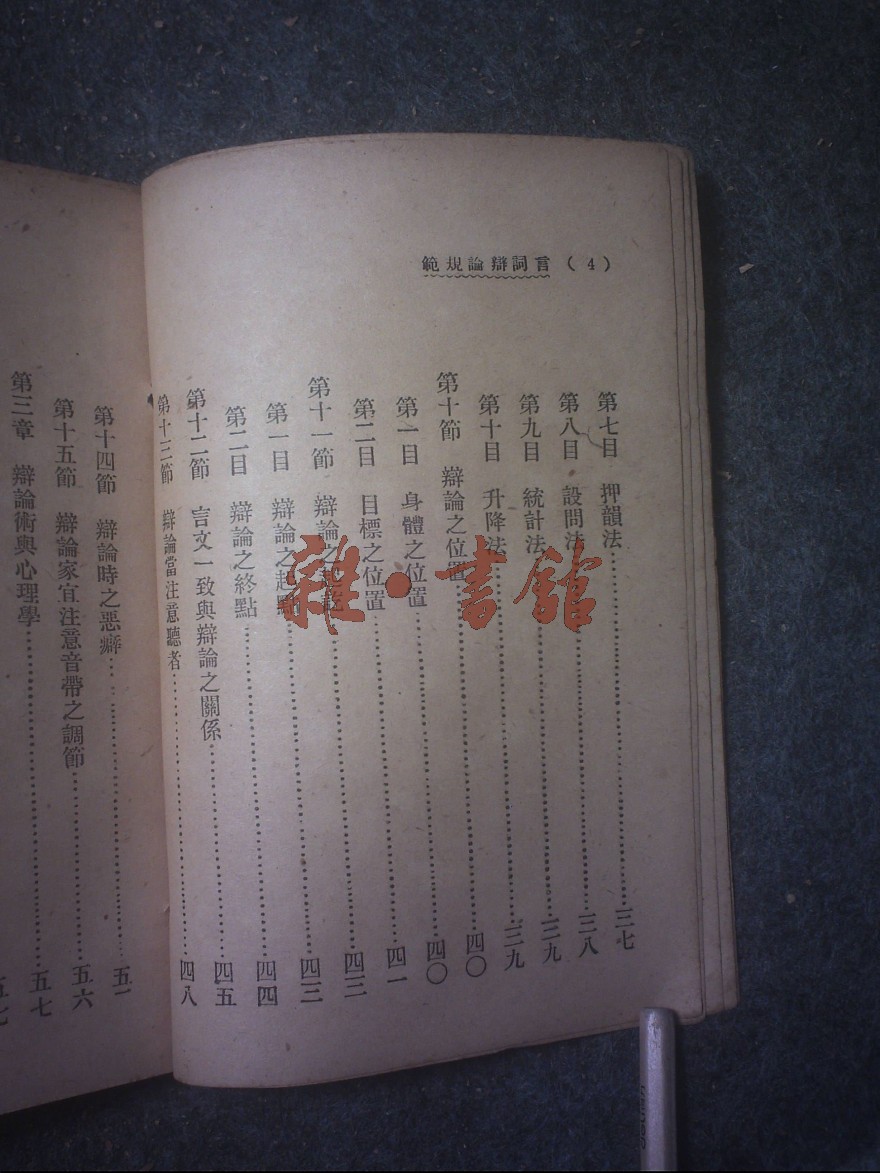 (4)言詞辯論規範
第七目 押韻法……三七
第八目 設問法……三八
第九目 統計法……三九
第十目 升降法……三九
第十節 辯論之位置……四〇
第一目 身體之位置……四〇
第二目 目標之位置……四一
第十一節 辯論之起訖……四三
第一目 辯論之起點……四三
第二目 辯論之終點……四四
第十二節 言文一致與辯論之關係……四五
第十三節 辯論當注意聽者……四八
第十四節 辯論時之惡癖……五一
第十五節 辯論家宜注意音帶之調節……五六
第三章 辯論術與心理學……五七
雜·書館